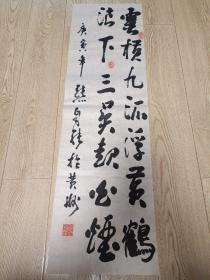 雲横九派浮黄鶴
浪下三吴起白煙
庚寅年熊於黄州